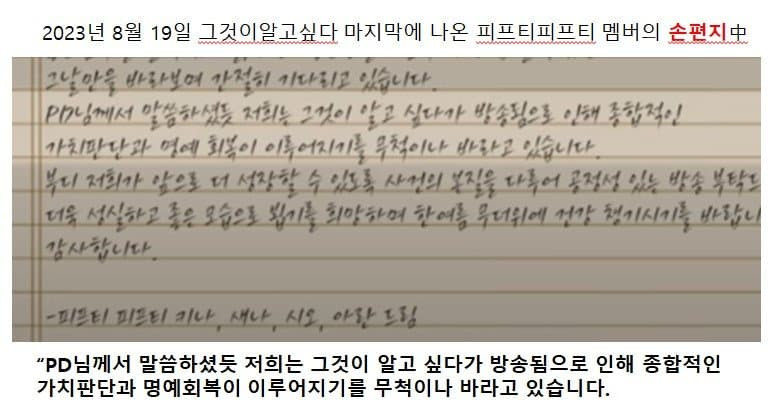 2023년 8월 19일 그것이알고싶다 마지막에 나온 피프티피프티 멤버의 손편지中
그날만을 바라보며 간절히 기다리고 있습니다.
PD님께서 말씀하셨듯 저희는 그것이 알고 싶다가 방송됨으로 인해 종합적인
가치판단과 명예 회복이 이루어지기를 무척이나 바라고 있습니다.
부디 저희가 앞으로 더 성장할 수 있도록 사건의 본질을 다루어 공정성 있는 방송 부탁드
더욱 성실하고 좋은 모습으로 뵙기를 희망하며 한여름 무더위에 건강 챙기시기를 바랍니
감사합니다.
-피프티 피프티 키나, 새나, 시오, 아란 드림
“PD님께서 말씀하셨듯 저희는 그것이 알고 싶다가 방송됨으로 인해 종합적인
가치판단과 명예회복이 이루어지기를 무척이나 바라고 있습니다.